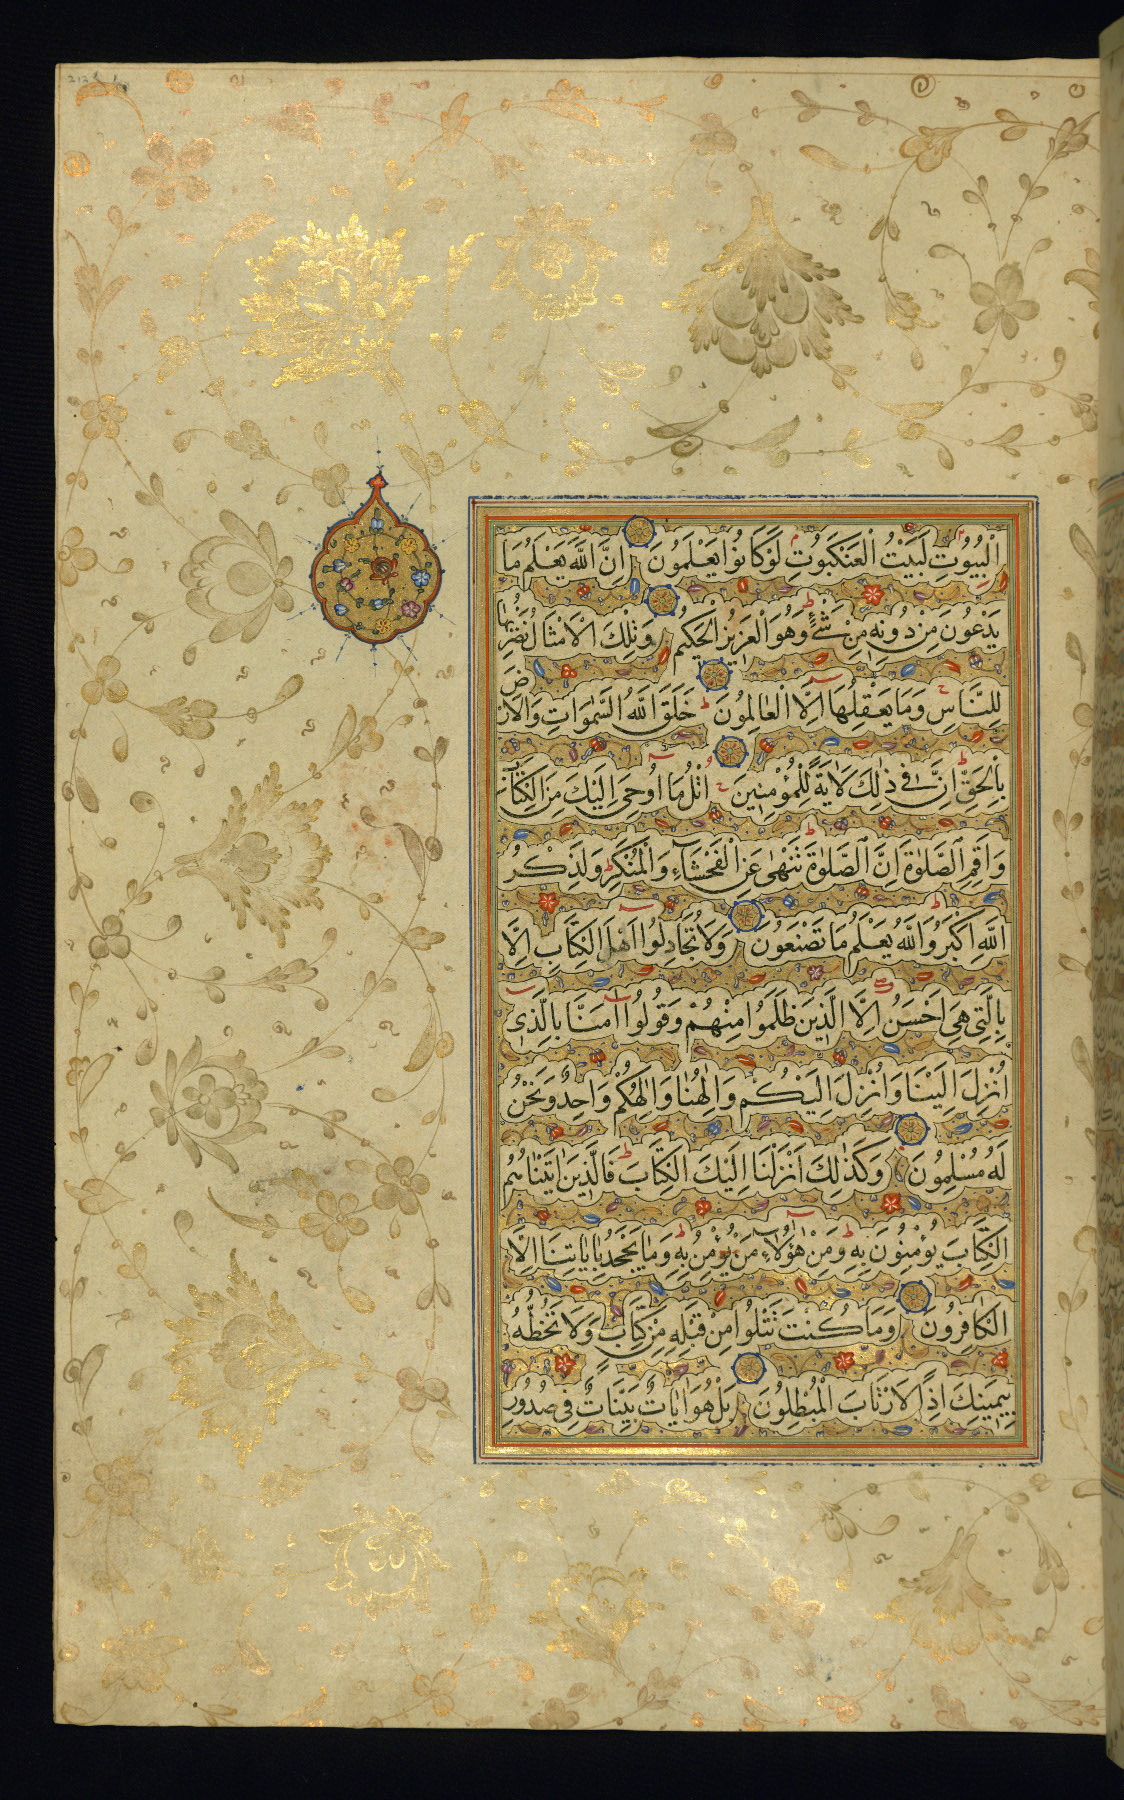 الْبُيُوتِ لَبَيْتُ الْعَنْكَبُوتِ لَوْ كَانُوا يَعْلَمُونَ اِنَّ اللّٰهَ يَعْلَمُ مَا
يَدْعُونَ مِنْ دُونِهِ مِنْ شَيْءٍ وَهُوَ الْعَزِيزُ الْحَكِيمُ وَتِلْكَ الْاَمْثَالُ نَضْرِبُهَا
لِلنَّاسِ وَمَا يَعْقِلُهَا اِلَّا الْعَالِمُونَ خَلَقَ اللّٰهُ السَّمٰوَاتِ وَالْاَرْضَ
بِالْحَقِّ اِنَّ فِي ذٰلِكَ لَاٰيَةً لِلْمُؤْمِنِينَ اُتْلُ مَا اُوحِيَ اِلَيْكَ مِنَ الْكِتَابِ
وَاَقِمِ الصَّلٰوةَ اِنَّ الصَّلٰوةَ تَنْهٰى عَنِ الْفَحْشَاءِ وَالْمُنْكَرِ وَلَذِكْرُ
اللّٰهِ اَكْبَرُ وَاللّٰهُ يَعْلَمُ مَا تَصْنَعُونَ وَلَا تُجَادِلُوا اَهْلَ الْكِتَابِ اِلَّا
بِالَّتِي هِيَ اَحْسَنُ اِلَّا الَّذِينَ ظَلَمُوا مِنْهُمْ وَقُولُوا اٰمَنَّا بِالَّذِي
اُنْزِلَ اِلَيْنَا وَاُنْزِلَ اِلَيْكُمْ وَاِلٰهُنَا وَاِلٰهُكُمْ وَاحِدٌ وَنَحْنُ
لَهُ مُسْلِمُونَ وَكَذٰلِكَ اَنْزَلْنَا اِلَيْكَ الْكِتَابَ فَالَّذِينَ اٰتَيْنَاهُمُ
الْكِتَابَ يُؤْمِنُونَ بِهِ وَمِنْ هٰؤُلَاءِ مَنْ يُؤْمِنُ بِهِ وَمَا يَجْحَدُ بِاٰيَاتِنَا اِلَّا
الْكَافِرُونَ وَمَا كُنْتَ تَتْلُوا مِنْ قَبْلِهِ مِنْ كِتَابٍ وَلَا تَخُطُّهُ
بِيَمِينِكَ اِذًا لَارْتَابَ الْمُبْطِلُونَ بَلْ هُوَ اٰيَاتٌ بَيِّنَاتٌ فِي صُدُورِ